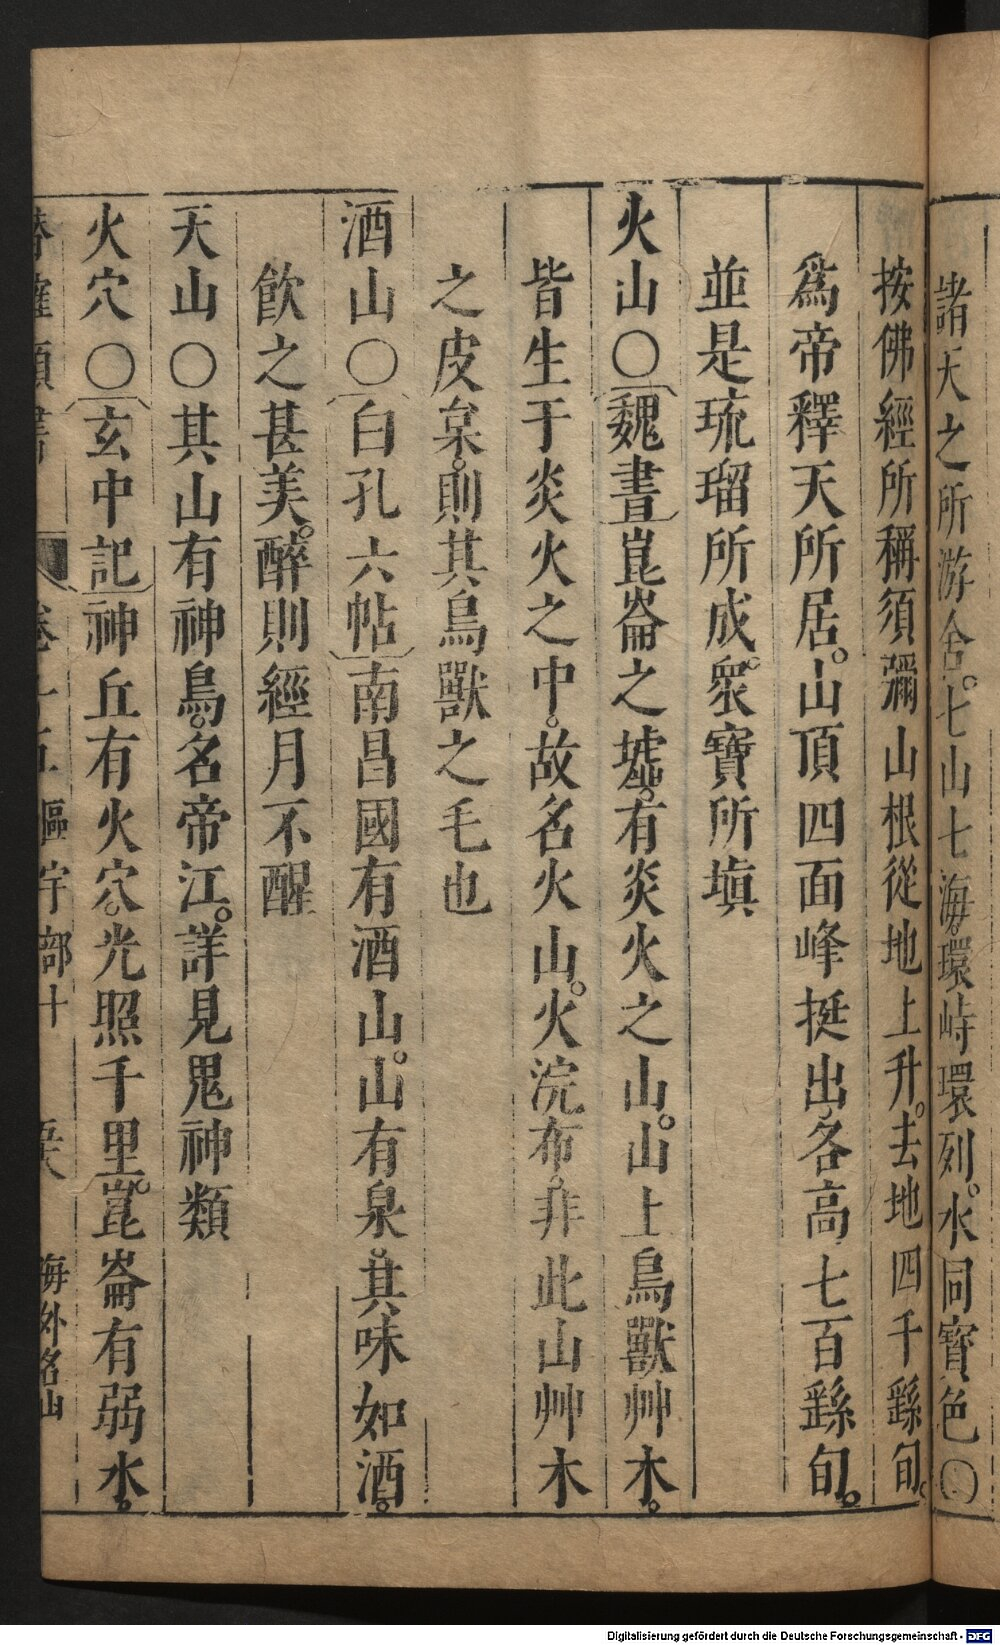 諸天之所游舍。七山七海。環峙環列。水同寶色〇
按佛經所稱須彌山根從地上升。去地四千繇旬。
爲帝釋天所居。山頂四面峰挺出各高七百繇旬。
並是琉瑠所成。衆寶所塡
火山〇〔魏書〕崑崙之墟。有炎火之山。山上鳥獸艸木。
皆生于炎火之中。故名火山。火浣布。非此山艸木
之皮枲。則其鳥獸之毛也
酒山〇〔白孔六帖〕南昌國有酒山。山有泉。其味如酒。
飮之甚美。醉則經月不醒
天山〇其山有神鳥。名帝江。詳見鬼神類
火穴〇〔玄中記〕神丘有火穴。光照千里。崑崙有弱水。
卷十五 區宇部十 海外名山
Digitalisierung gefördert durch die Deutsche Forschungsgemeinschaft - DFG